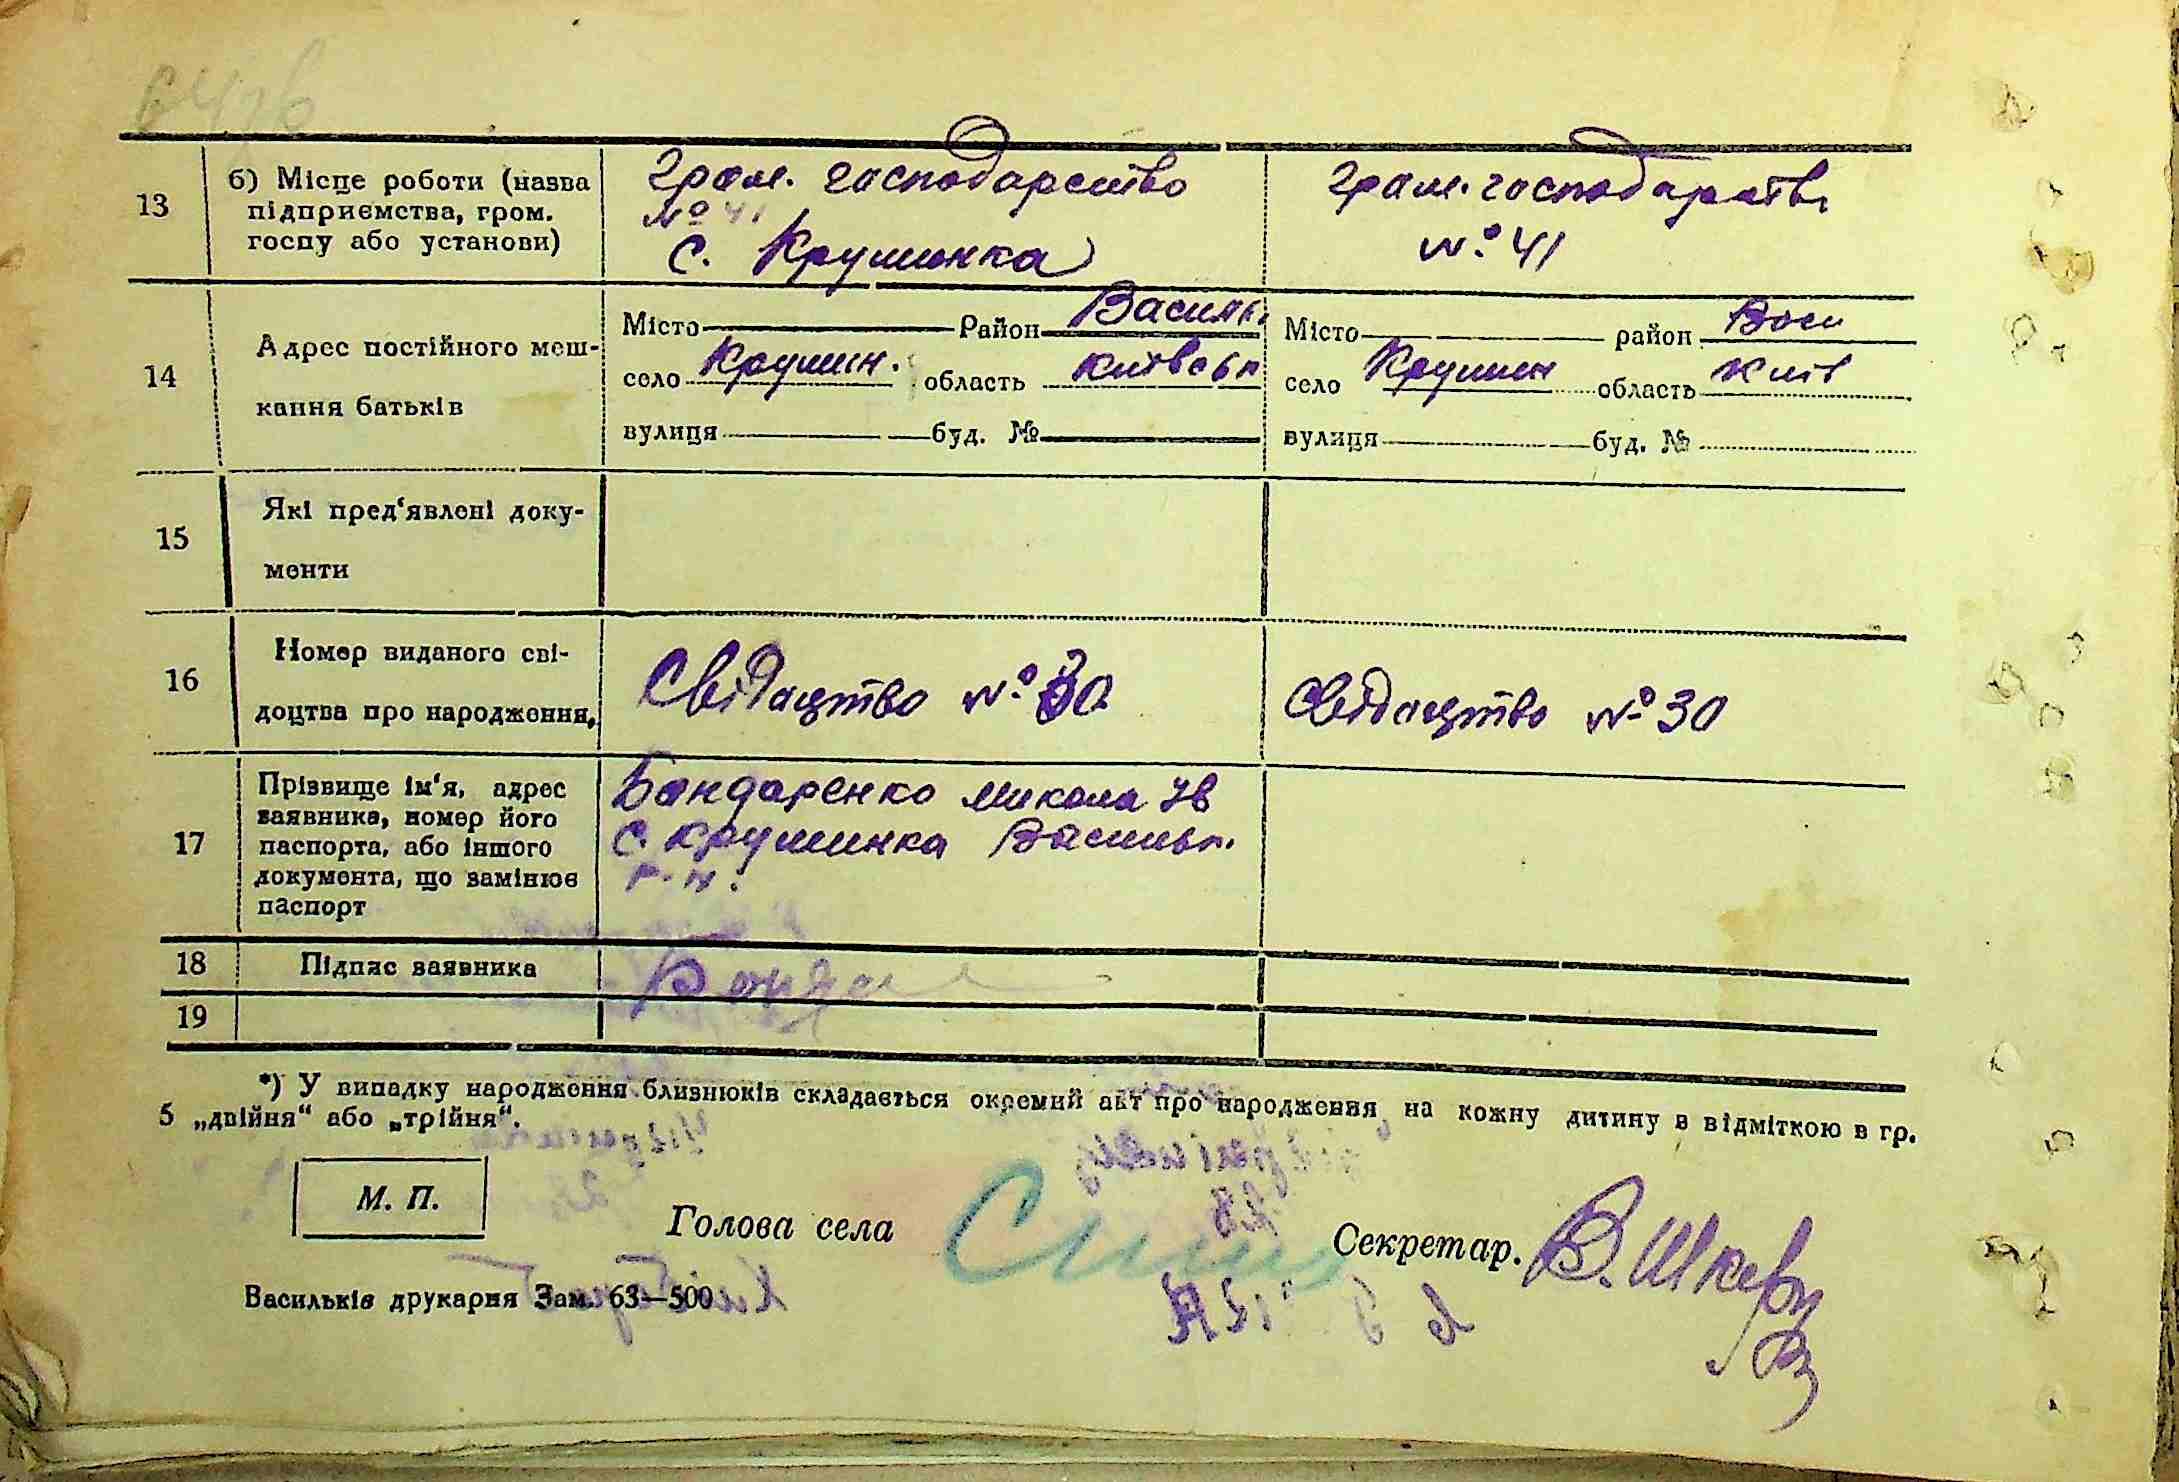 13
б) Місце роботи (назва
підприємства, гром.
госпу або установи)
Гром. господарство
№ 41
с. Крушинка
гром. господарств
№ 41
14
Адрес постійного меш-
кання батьків
Місто Район Васильк.
село Крушин. область Київськ
вулиця буд. №
Місто район Васи
село Крушин область Київ
вулиця буд. №
15
Які пред‘явлені доку-
менти
16
Номер виданого сві-
доцтва про народження,
Свідацтво № 30
Свідацтво № 30
17
Прізвище ім‘я, адрес
заявника, номер його
паспорта, або іншого
документа, що замінює
паспорт
Бондаренко Микола Ів
с. Крушинка Васильк.
р-н.
18
Підпис заявника
19
*) У випадку народження близнюків складається окремий акт про народження на кожну дитину з відміткою в гр.
5 „двійня“ або „трійня“.
М. П.
Голова села
Секретар.
Васильків друкарня Зам. 63—500